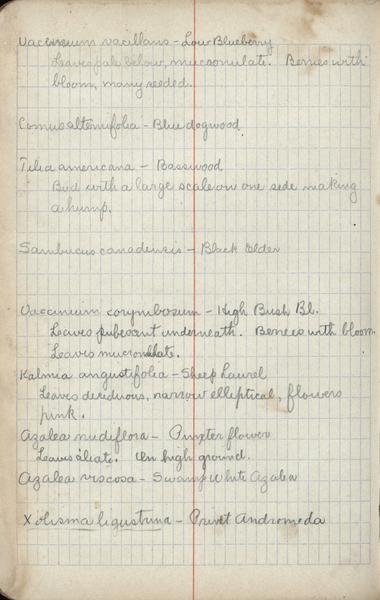 Vaccinium vacillans - Low Blueberry
Leaves pale below, mucronulate. Berries with
bloom, many seeded.
Cornus alternifolia - Blue dogwood
Tilia americana - Basswood
Bud with a large scale on one side making
a hump.
Sambucus canadensis - Black Elder
Vaccinium corymbosum - High Bush Bl.
Leaves pubescent underneath. Berries with bloom.
Leaves mucronulate.
Kalmia angustifolia - Sheep Laurel
Leaves deciduous, narrow elliptical, flowers
pink.
Azalea nudiflora - Pinxter flower
Leaves ciliate. On high ground.
Azalea viscosa - Swamp White Azalea
Xolisma ligustrina - Privet Andromeda